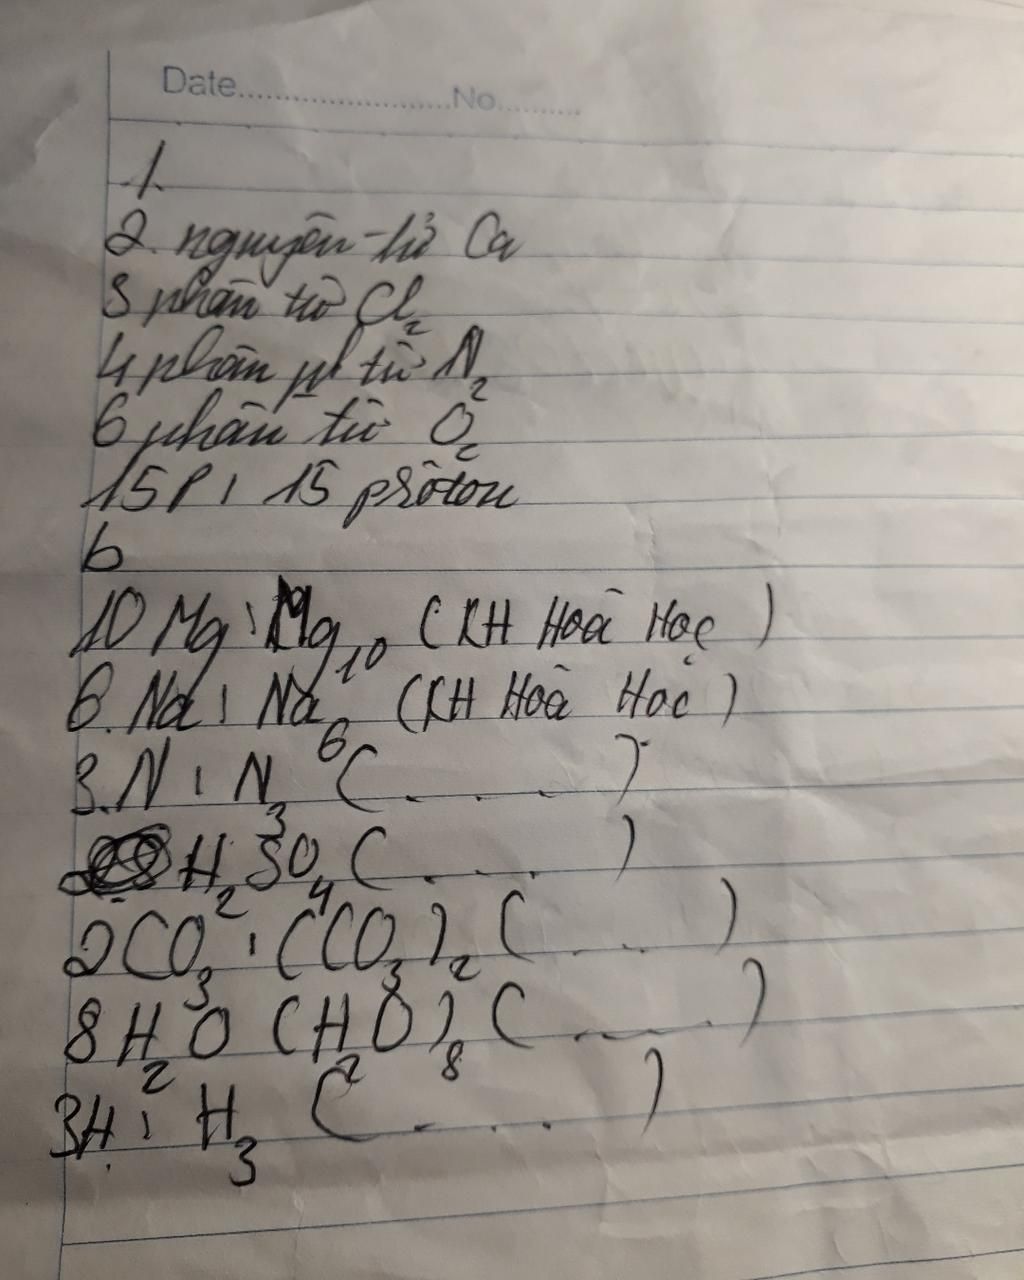 Date........................No..........
1.
2. nguyên tử Ca
3 phân tử Cl₂
4 phân tử N₂
6 phân tử O₂
15P: 15 prôton
b
10 Mg: Mg₁₀ (KH Hoá Học)
6. Na: Na₆ (KH Hoá Học)
3. N: N₃ (. . . .)
H₂SO₄ (. . . .)
2CO₃: (CO₃)₂ (. . . .)
8H₂O (H₂O)₈ (. . . .)
3H: H₃ (. . . .)